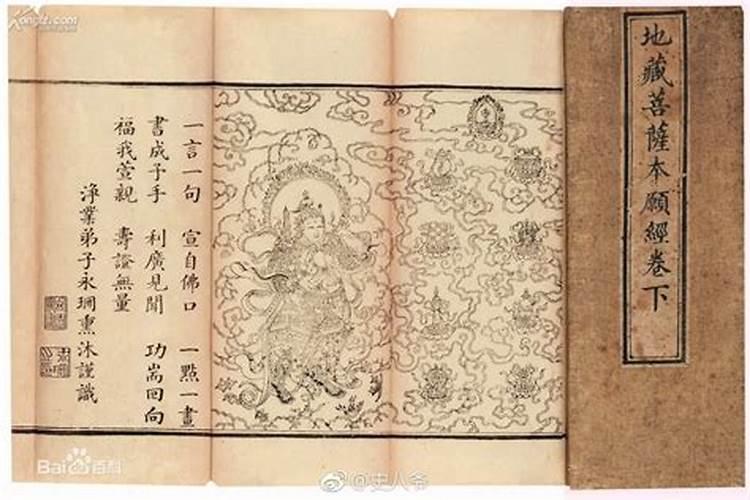 Kongfz.com
地藏菩薩本願經卷下
一言一句 宣自佛口 一點一畫
書成予手 利廣見聞 功耑回向
福我萱親 壽證無量
淨業弟子永熏沐謹識
Bai 百科
@史人爷